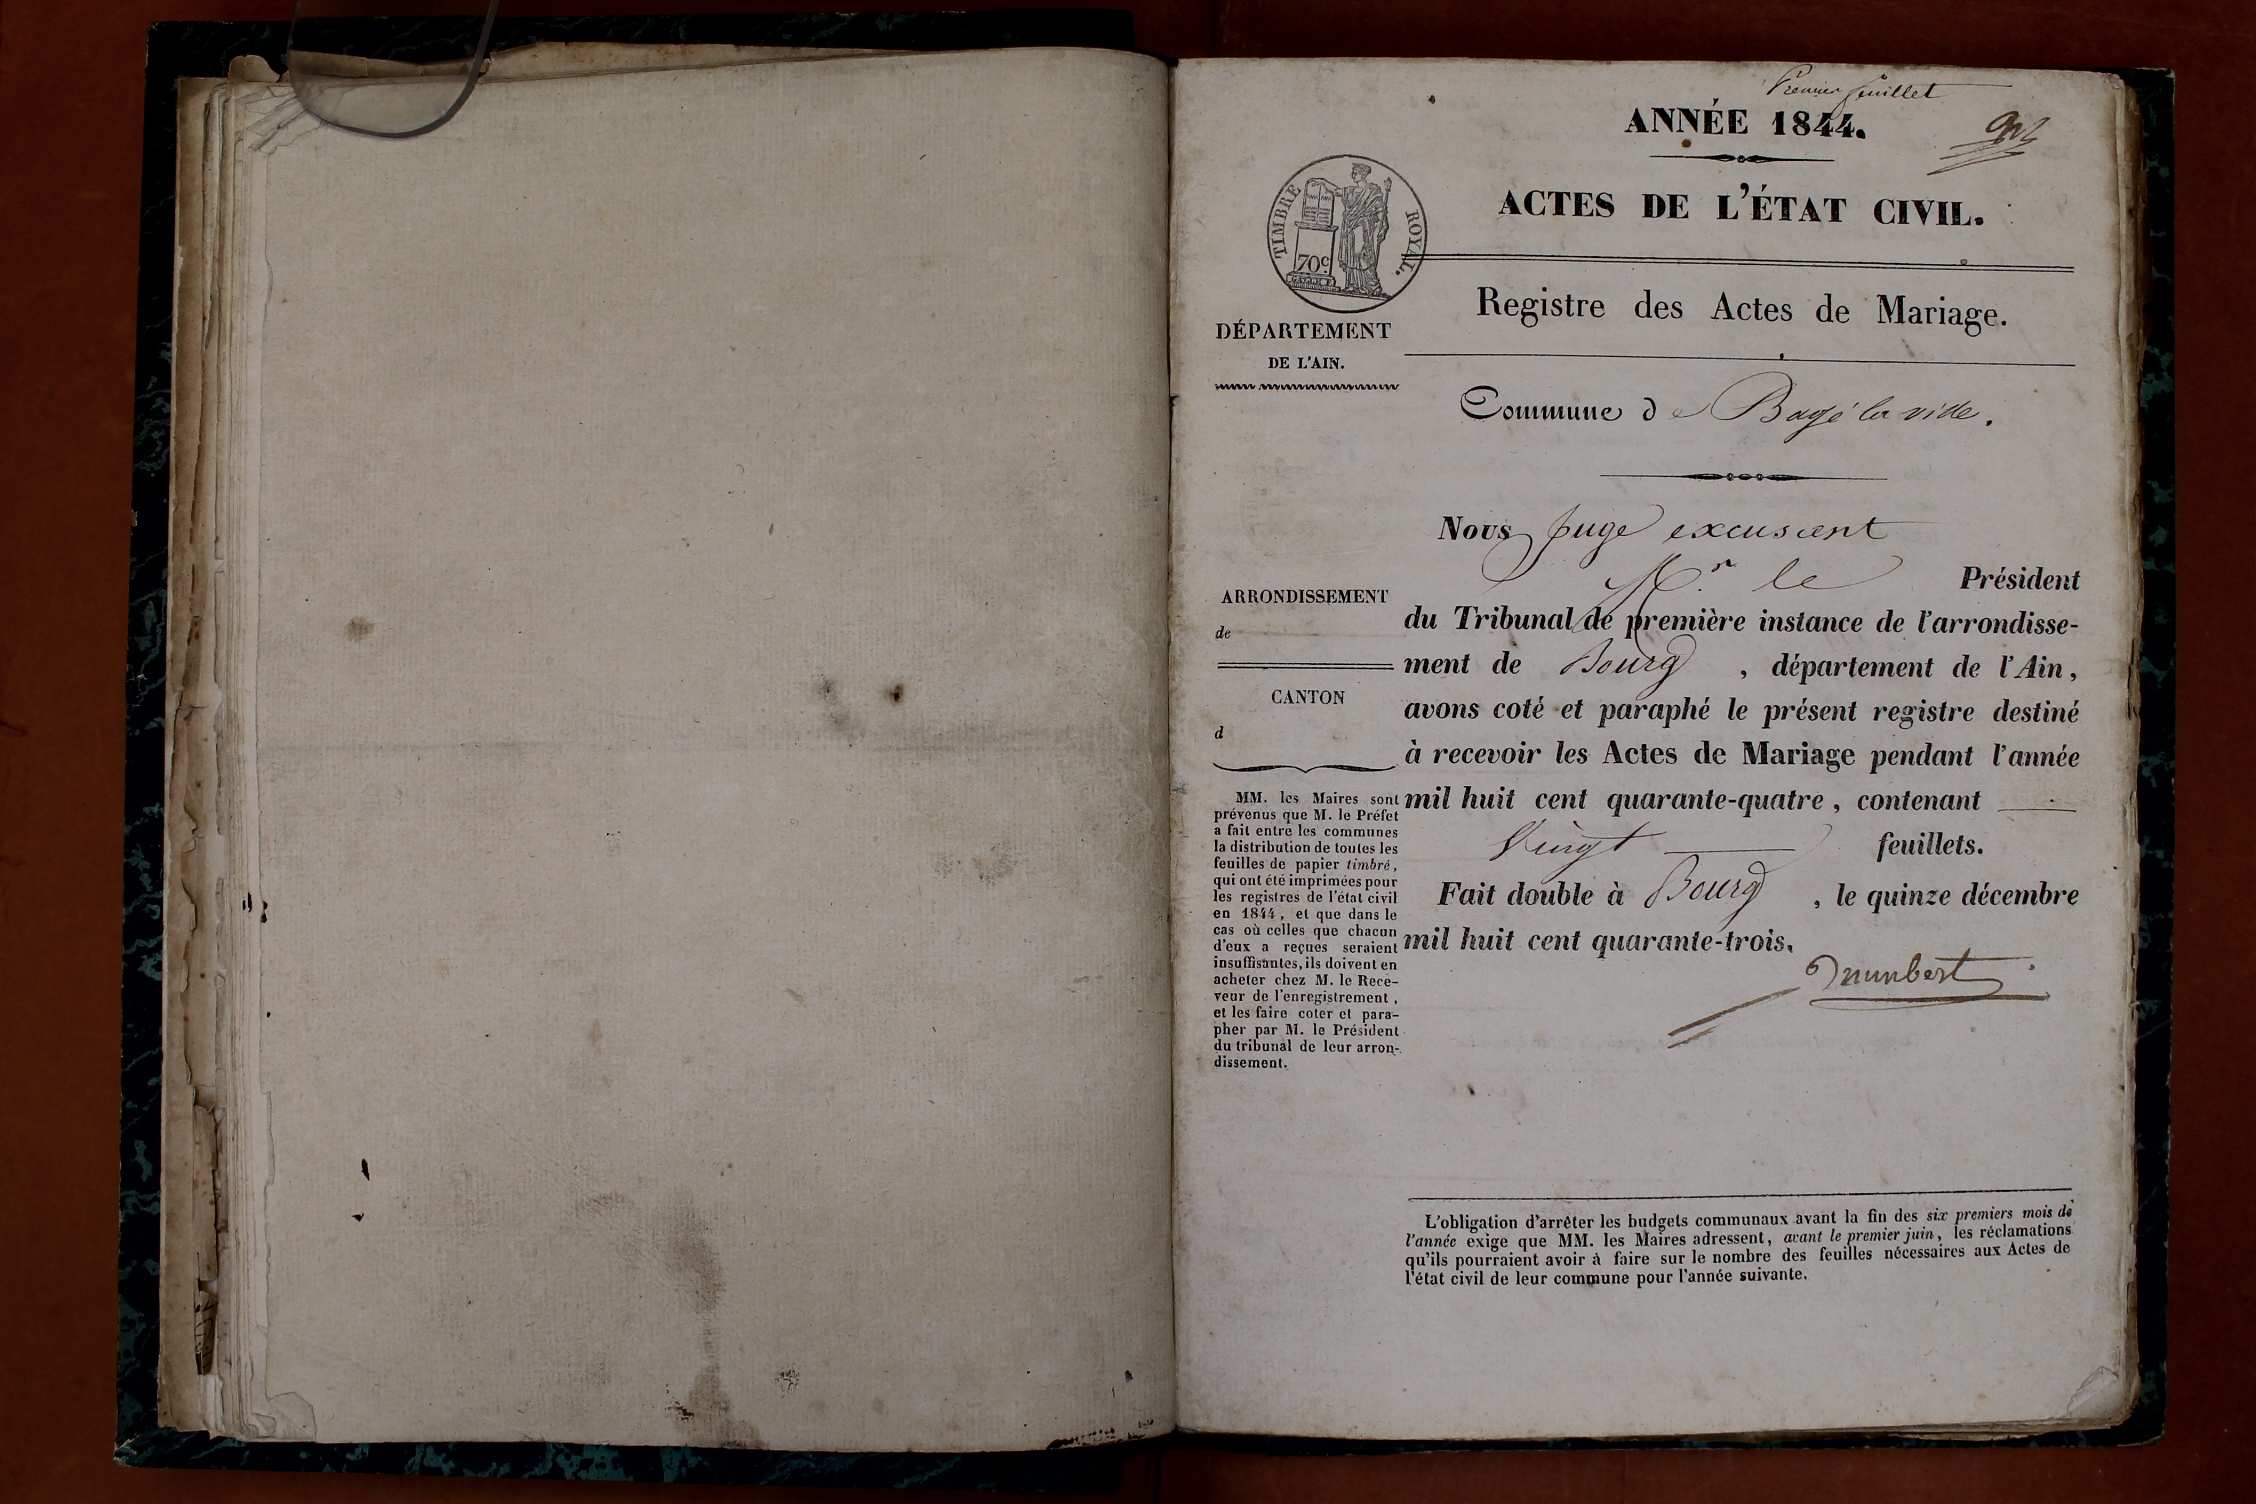 Premier feuillet
ANNÉE 1844.
ACTES DE L'ÉTAT CIVIL.
TIMBRE ROYAL.
70c
Registre des Actes de Mariage.
DÉPARTEMENT
DE L'AIN.
Commune de Bagé la ville.
Nous Juge excusant
Mr. le Président
du Tribunal de première instance de l'arrondisse-
ment de Bourg, département de l'Ain,
avons coté et paraphé le présent registre destiné
à recevoir les Actes de Mariage pendant l'année
mil huit cent quarante-quatre, contenant
Vingt feuillets.
Fait double à Bourg, le quinze décembre
mil huit cent quarante-trois.
ARRONDISSEMENT
de
CANTON
d
MM. les Maires sont
prévenus que M. le Préfet
a fait entre les communes
la distribution de toutes les
feuilles de papier timbré,
qui ont été imprimées pour
les registres de l'état civil
en 1844, et que dans le
cas où celles que chacun
d'eux a reçues seraient
insuffisantes, ils doivent en
acheter chez M. le Rece-
veur de l'enregistrement,
et les faire coter et para-
pher par M. le Président
du tribunal de leur arron-
dissement.
L'obligation d'arrêter les budgets communaux avant la fin des six premiers mois de
l'année exige que MM. les Maires adressent, avant le premier juin, les réclamations
qu'ils pourraient avoir à faire sur le nombre des feuilles nécessaires aux Actes de
l'état civil de leur commune pour l'année suivante.